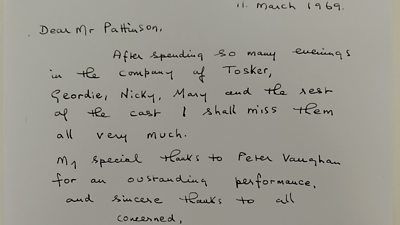 11. March 1969.
Dear Mr Pattinson,
After spending so many evenings
in the company of Tosker,
Geordie, Nicky, Mary and the rest
of the cast I shall miss them
all very much.
My special thanks to Peter Vaughan
for an oustanding performance.
and sincere thanks to all
concerned,